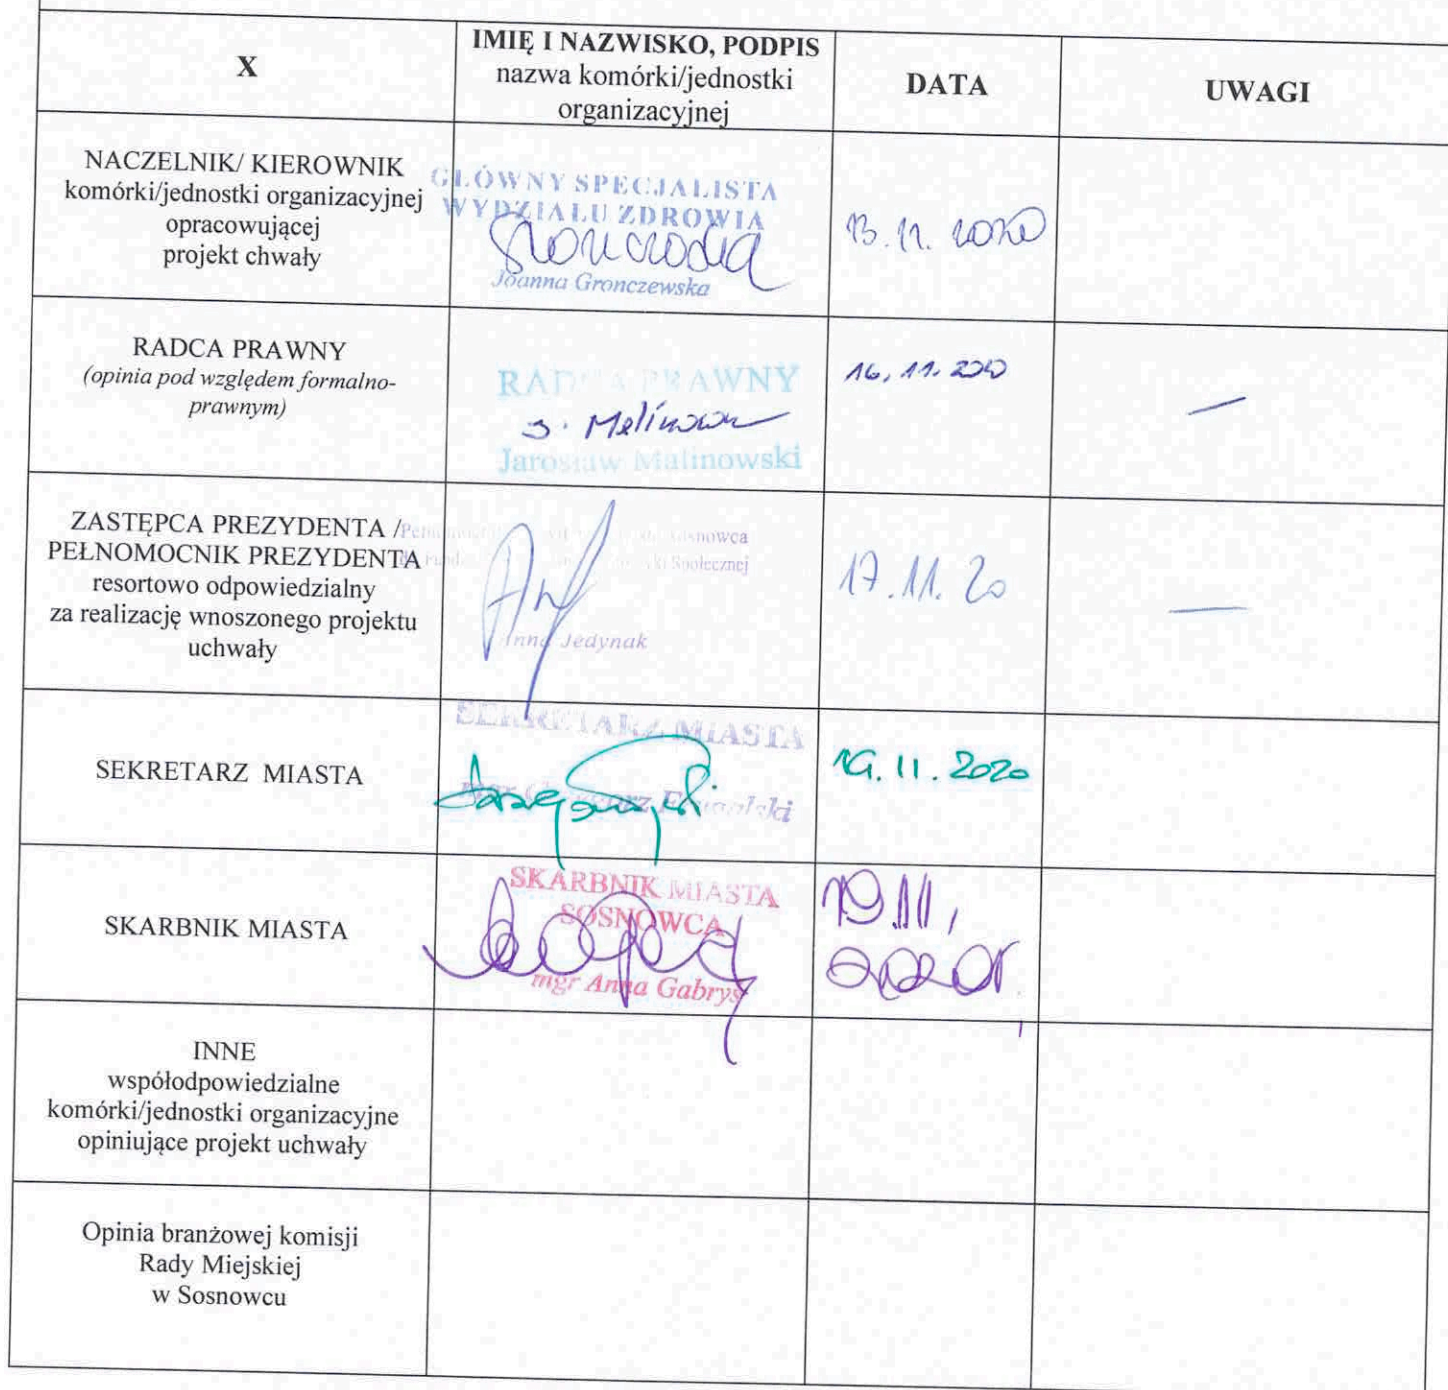 X
IMIĘ I NAZWISKO, PODPIS
nazwa komórki/jednostki
organizacyjnej
DATA
UWAGI
NACZELNIK/ KIEROWNIK
komórki/jednostki organizacyjnej
opracowującej
projekt chwały
GŁÓWNY SPECJALISTA
WYDZIAŁU ZDROWIA
Joanna Gronczewska
13.11.2020
RADCA PRAWNY
(opinia pod względem formalno-
prawnym)
RADCA PRAWNY
Jarosław Malinowski
16.11.2020
—
ZASTĘPCA PREZYDENTA /
PEŁNOMOCNIK PREZYDENTA
resortowo odpowiedzialny
za realizację wnoszonego projektu
uchwały
Sosnowca
Społecznej
Anna Jedynak
17.11.20
—
SEKRETARZ MIASTA
SEKRETARZ MIASTA
mgr
19.11.2020
SKARBNIK MIASTA
SKARBNIK MIASTA
SOSNOWCA
mgr Anna Gabryś
19.11,
2020r.
INNE
współodpowiedzialne
komórki/jednostki organizacyjne
opiniujące projekt uchwały
Opinia branżowej komisji
Rady Miejskiej
w Sosnowcu